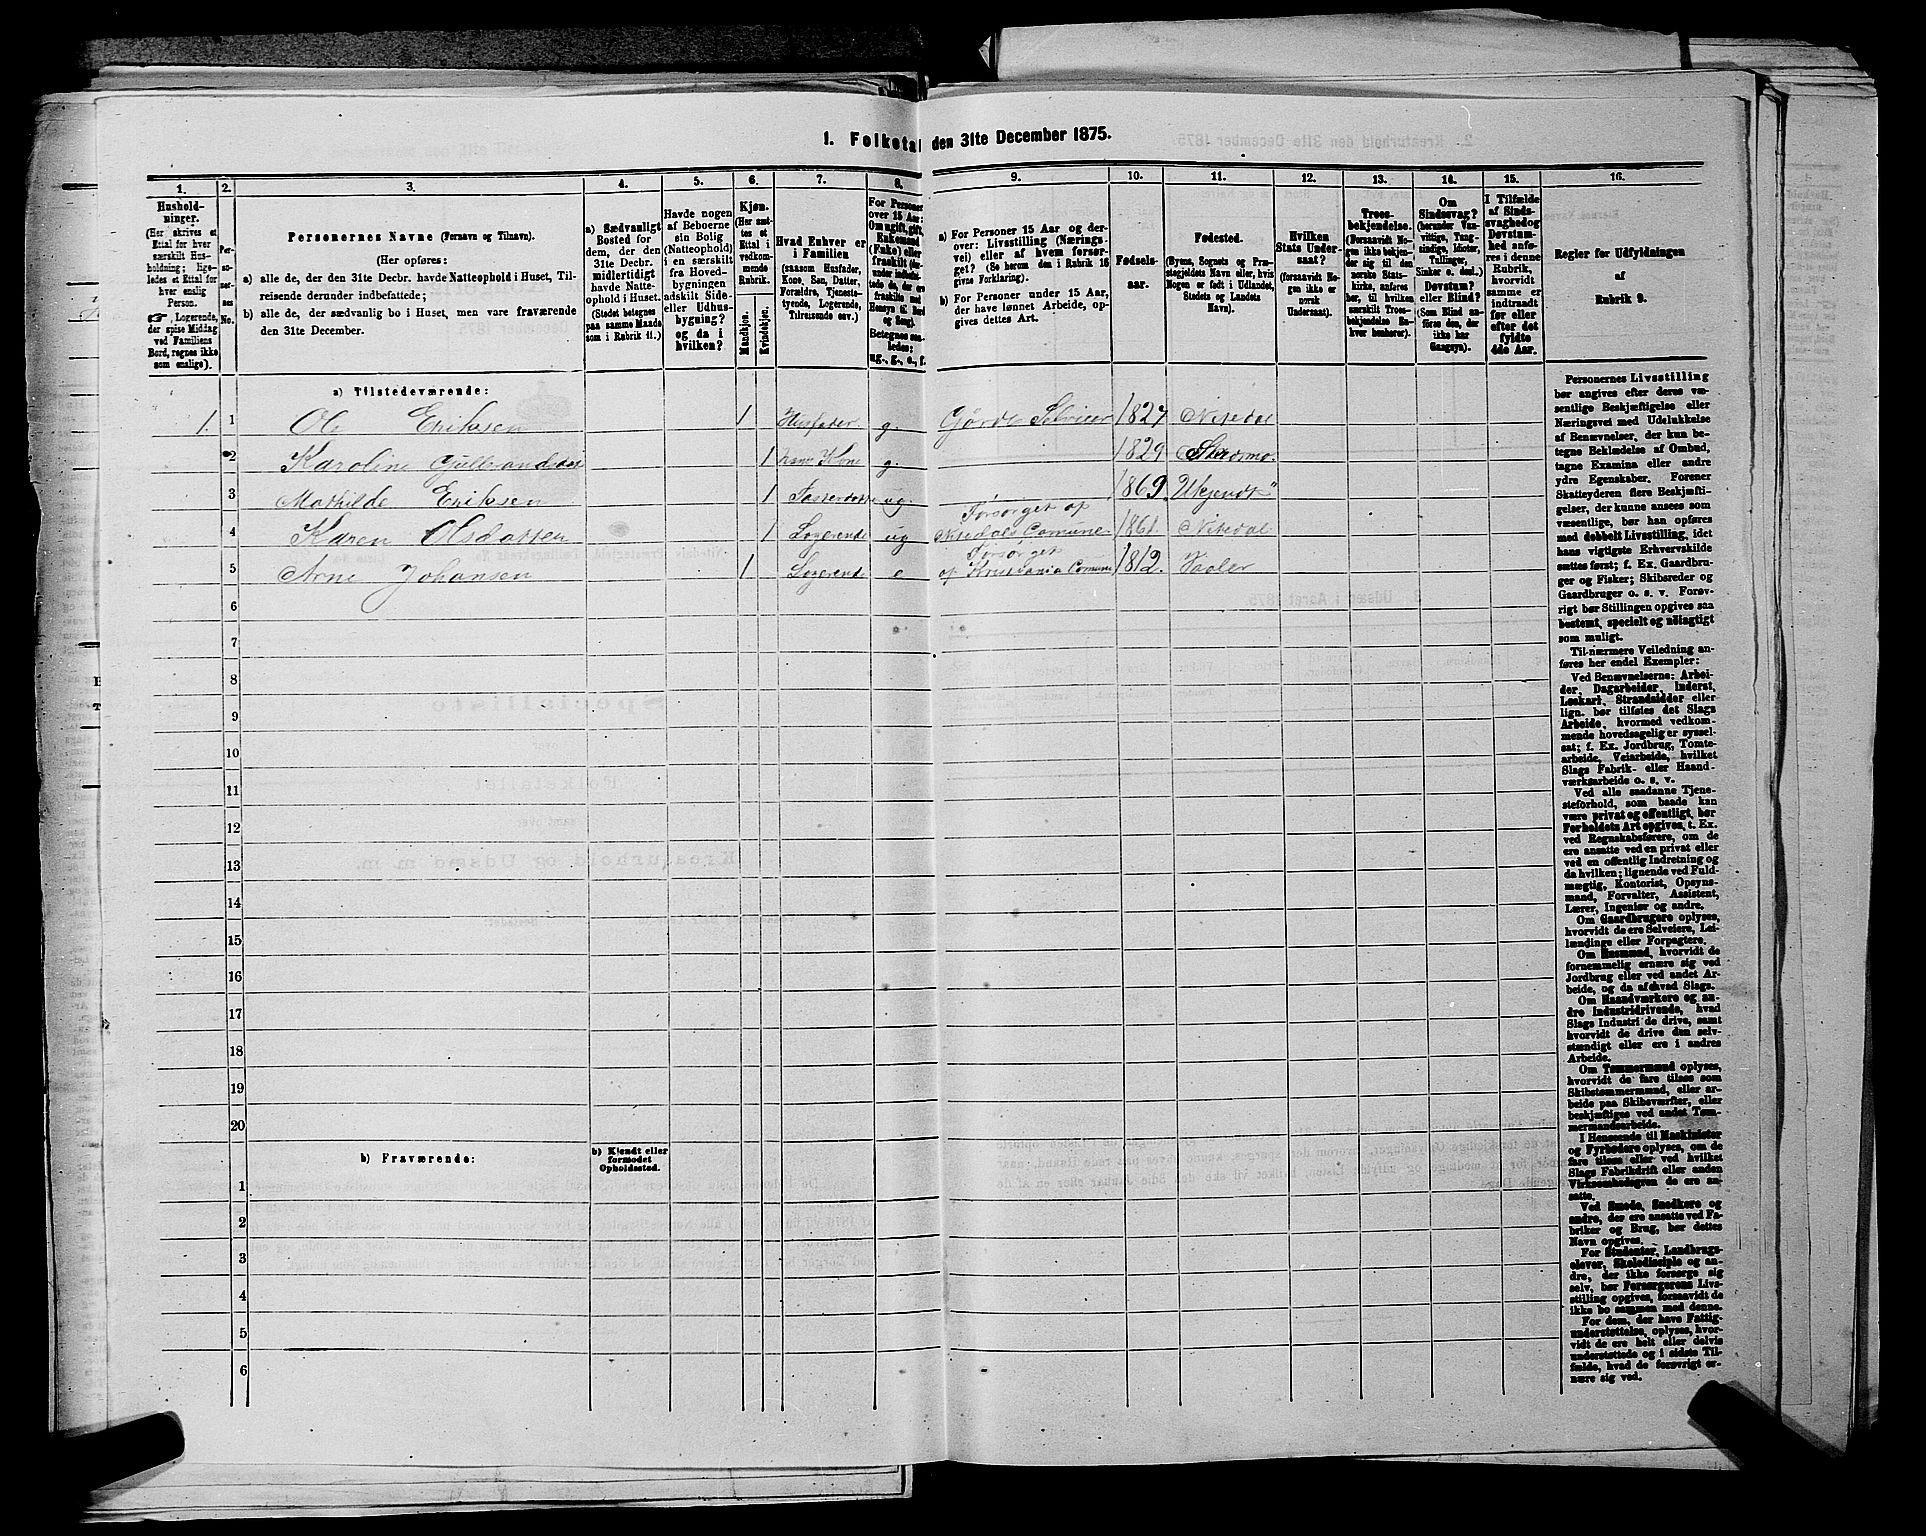 1. Folketal den 31te December 1875.
1. 2. 3. 4. 5. 6. 7. 8. 9. 10. 11. 12. 13. 14. 15. 16.
Hushold-
ninger.
(Her skrives et
Ettal for hver
særskilt Hus-
holdning; lige-
ledes et Ettal for
hver enslig
Person.
Logerende,
der spise Middag
ved Familiens
Bord, regnes ikke
som enslige).
Per-
so-
ner-
nes
No.
Personernes Navne (Fornavn og Tilnavn).
(Her opføres:
a) alle de, der den 31te Decbr. havde Natteophold i Huset, Til-
reisende derunder indbefattede;
b) alle de, der sædvanlig bo i Huset, men vare fraværende
den 31te December.
a) Sædvanligt
Bosted for
dem, der den
31te Decbr.
midlertidigt
havde Natte-
ophold i Huset.
(Stedet betegnes
paa samme Maade
som i Rubrik 11.)
Havde nogen
af Beboerne
sin Bolig
(Natteophold)
i en særskilt
fra Hoved-
bygningen
adskilt Side-
eller Udhus-
bygning?
og da i
hvilken?
Kjøn.
(Her sæt-
tes et
Ettal i
vedkom-
mende
Rubrik.
Mandkjøn.
Kvindekjøn.
Hvad Enhver er
i Familien
(saasom Husfader,
Kone, Søn, Datter,
Forældre, Tjeneste-
tyende, Logerende,
Tilreisende osv.)
For Personer
over 15 Aar:
Om ugift, gift,
Enkemand
(Enke) eller
fraskilt
Betegnes saa-
ledes:
ug., g., e., f.
a) For Personer 15 Aar og der-
over: Livsstilling (Nærings-
vei) eller af hvem forsør-
get? (Se herom den i Rubrik 16
givne Forklaring).
b) For Personer under 15 Aar,
der have lønnet Arbeide, op-
gives dettes Art.
Fødsels-
aar.
Fødested.
(Byens, Sognets og Præ-
stegjeldets Navn eller, hvis
Nogen er født i Udlandet,
Stedets og Landets
Navn).
Hvilken
Stats Under-
saat?
(forsaavidt No-
gen ikke er
norsk
Undersaat).
Troes-
bekjendelse.
(Forsaavidt No-
gen ikke bekjen-
der sig til den
norske Stats-
kirke, anføres
her, til hvilken
særskilt Troes-
bekjendelse En-
hver henhører).
Om
Sindssvag?
(herunder Van-
vittige, Tung-
sindige, Idioter,
Tullinger,
Sinker o. desl.)
Døvstum?
eller Blind?
(Som Blind an-
føres den, der
ikke har
Gangsyn).
I Tilfælde
af Sinds-
svaghed og
Døvstum-
hed anfø-
res i denne
Rubrik,
hvorvidt
samme er
indtraadt
før eller
efter det
fyldte
4de Aar.
Regler for Udfyldningen
af
Rubrik 9.
a) Tilstedeværende:
1 1 Ole Eriksen 1 Husfader g. 1827 Nitedal
2 Karoline 1 hans Kone g. 1829
3 Mathilde Eriksen 1 ug. 1869. Ukjendt"
Forsørget af
4 Karen Olsdatter 1 Logerende ug Nitedals Comune 1861. Nitedal
Forsørget
5 Arne Johansen 1 Logerende e af Kristiania Comune 1812. Vaaler
6
7
8
9
10
11
12
13
14
15
16
17
18
19
20
b) Fraværende:
b) Kjendt eller
formodet
Opholdssted.
1
2
3
4
5
6
Personernes Livsstilling
bør angives efter deres væ-
sentlige Beskjæftigelse eller
Næringsvei med Udelukkelse
af Benævnelser, der kun be-
tegne Beklædelse af Ombud,
tagne Examina eller andre
ydre Egenskaber. Forener
Skatteyderen flere Beskjæfti-
gelser, der kunne ansees som
væsentlige, bør han opføres
med dobbelt Livsstilling, idet
hans vigtigste Erhvervskilde
sættes først; f. Ex. Gaardbru-
ger og Fisker; Skibsreder og
Gaardbruger o. s. v. Forøv-
rigt bør Stillingen opgives saa
bestemt, specielt og nøiagtigt
som muligt.
Til nærmere Veiledning an-
føres her endel Exempler:
Ved Benævnelserne: Arbei-
der, Dagarbeider, Inderst,
Løskarl, Strandsidder eller
lign. bør tilføies det Slags
Arbeide, hvormed vedkom-
mende hovedsagelig er syssel-
sat; f. Ex. Jordbrug, Tomte-
arbeide, Veiarbeide, hvilket
Slags Fabrik- eller Haand-
værksarbeide o. s. v.
Ved alle saadanne Tjene-
steforhold, som baade kan
være privat og offentligt, bør
Forholdets Art opgives, t. Ex.
ved Regnskabsførere, om de
ere ansatte ved en privat eller
ved en offentlig Indretning og
da hvilken; lignende ved Fuld-
mægtig, Kontorist, Opsyns-
mand, Forvalter, Assistent,
Lærer, Ingeniør og andre.
Om Gaardbrugere oplyses,
hvorvidt de ere Selveiere, Lei-
lændinge eller Forpagtere.
Om Husmænd, hvorvidt de
fornemmelig ernære sig ved
Jordbrug eller ved andet Ar-
beide, og da af hvad Slags.
Om Haandværkere og an-
dre Industridrivende, hvad
Slags Industri de drive, samt
hvorvidt de drive den selv-
stændigt eller ere i andres
Arbeide.
Om Tømmermænd oplyses,
hvorvidt de fare tilsøs som
Skibstømmermænd, eller ar-
beide paa Skibsværfter, eller
beskjæftiges ved andet Tøm-
mermandsarbeide.
I Henseende til Maskinister
og Fyrbødere oplyses, om de
fare tilsøs eller ved hvilket
Slags Fabrikdrift eller anden
Virksomhedsgren de ere an-
satte.
Ved Smede, Snedkere og
andre, der ere ansatte ved Fa-
briker og Brug, bør dettes
Navn opgives.
For Studenter, Landbrugs-
elever, Skoledisciple og an-
dre, der ikke forsørge sig
selv, bør Forsørgerens Livs-
stilling opgives, forsaavidt de
ikke bo sammen med denne.
For dem, der have Fattig-
understøttelse, oplyses, hvor-
vidt de ere helt eller delvis
understøttede og i sidste Til-
fælde, hvad de forøvrigt er-
nære sig ved.